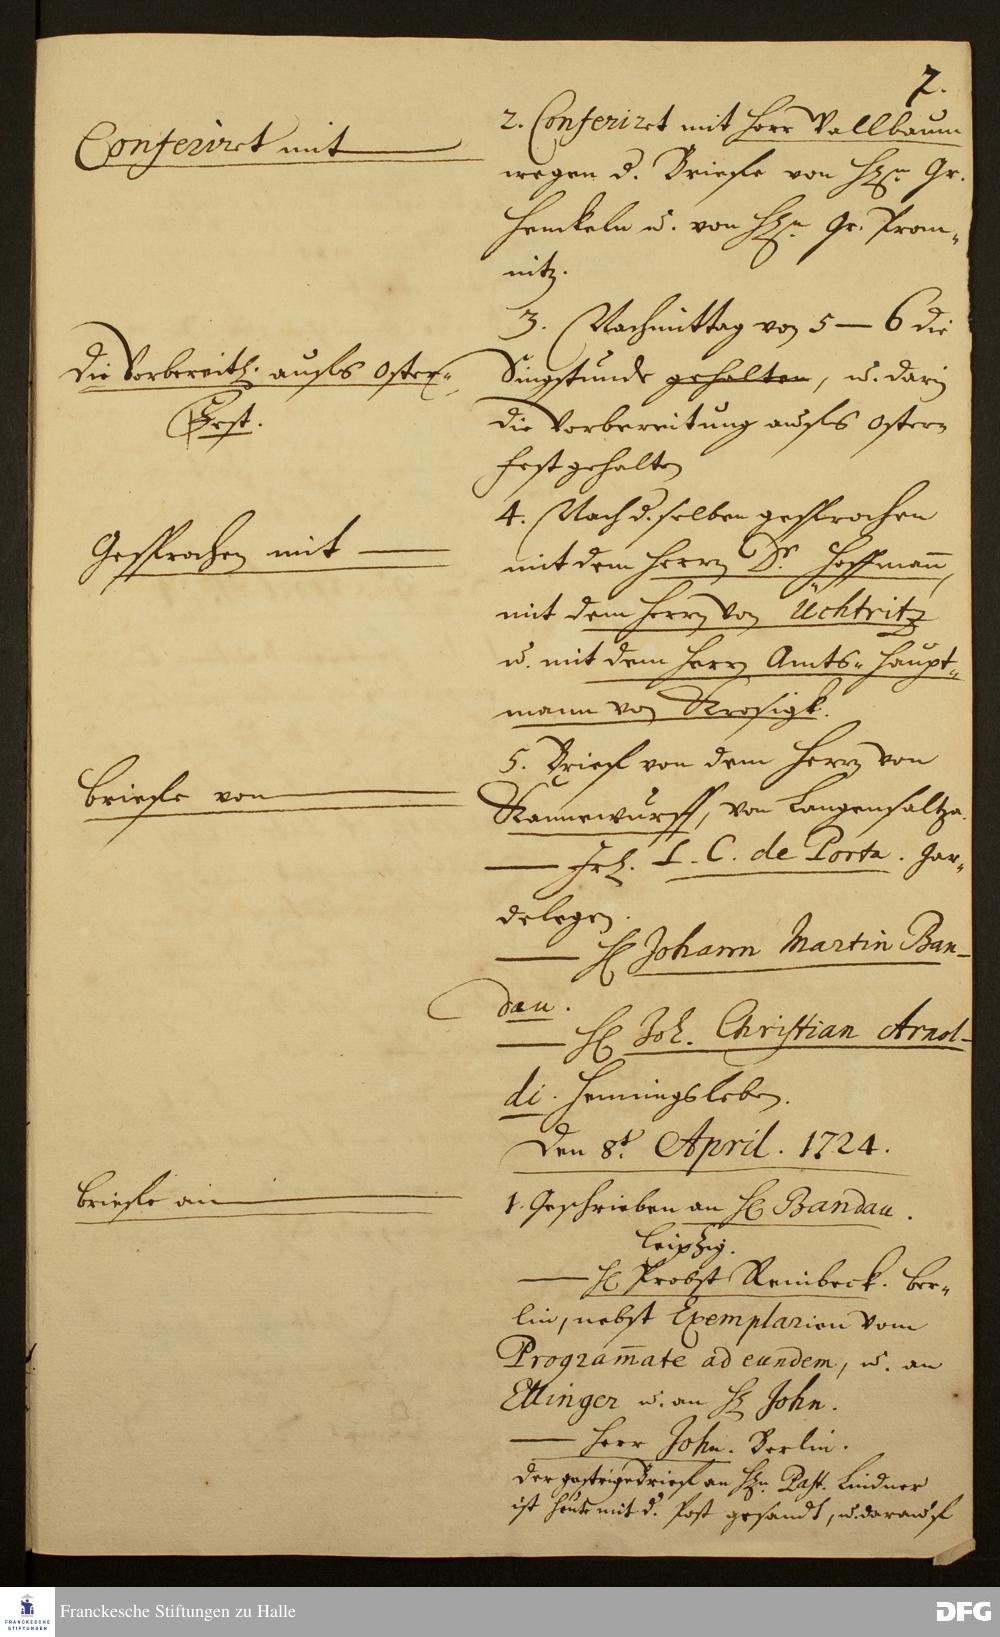 7.
Conferiret mit
2. Conferiret mit Herr Wallbaum
wegen d. Briefe von H. Gr.
Henckeln u. von H. Gr. Prom-
nitz.
3. Nachmittag von 5 – 6 die
Die Vorbereit. aufs Oster-
Fest.
Singstunde gehalten, u. darin
die Vorbereitung aufs Oster
fest gehalten
Gesprochen mit
4. Nach d. selben gesprochen
mit dem Herrn Dr. Hoffmann,
mit dem Herrn von Üchtritz
u. mit dem Herrn Amts-Haupt-
mann von Krosigk.
Briefe von
5. Brief von dem Herrn von
Kannewurff, von Langensaltza.
L. C. de Porta. Gar-
delegen.
H Johann Martin Ban-
dau.
H Joh. Christian Arnol-
di. Henningsleben.
Den 8t. April. 1724.
Briefe an
1. Geschrieben an H Bandau.
Leipzig.
H Probst Reinbeck. Ber-
lin, nebst Exemplarien vom
Programmate ad eundem, u. an
Ettinger u. an H John.
Herr John. Berlin.
Der gestrige Brief an H. Past. Lindner
ist heute mit d. Post gesandt, u. darauf
Franckesche Stiftungen zu Halle
FRANCKESCHE
STIFTUNGEN
DFG